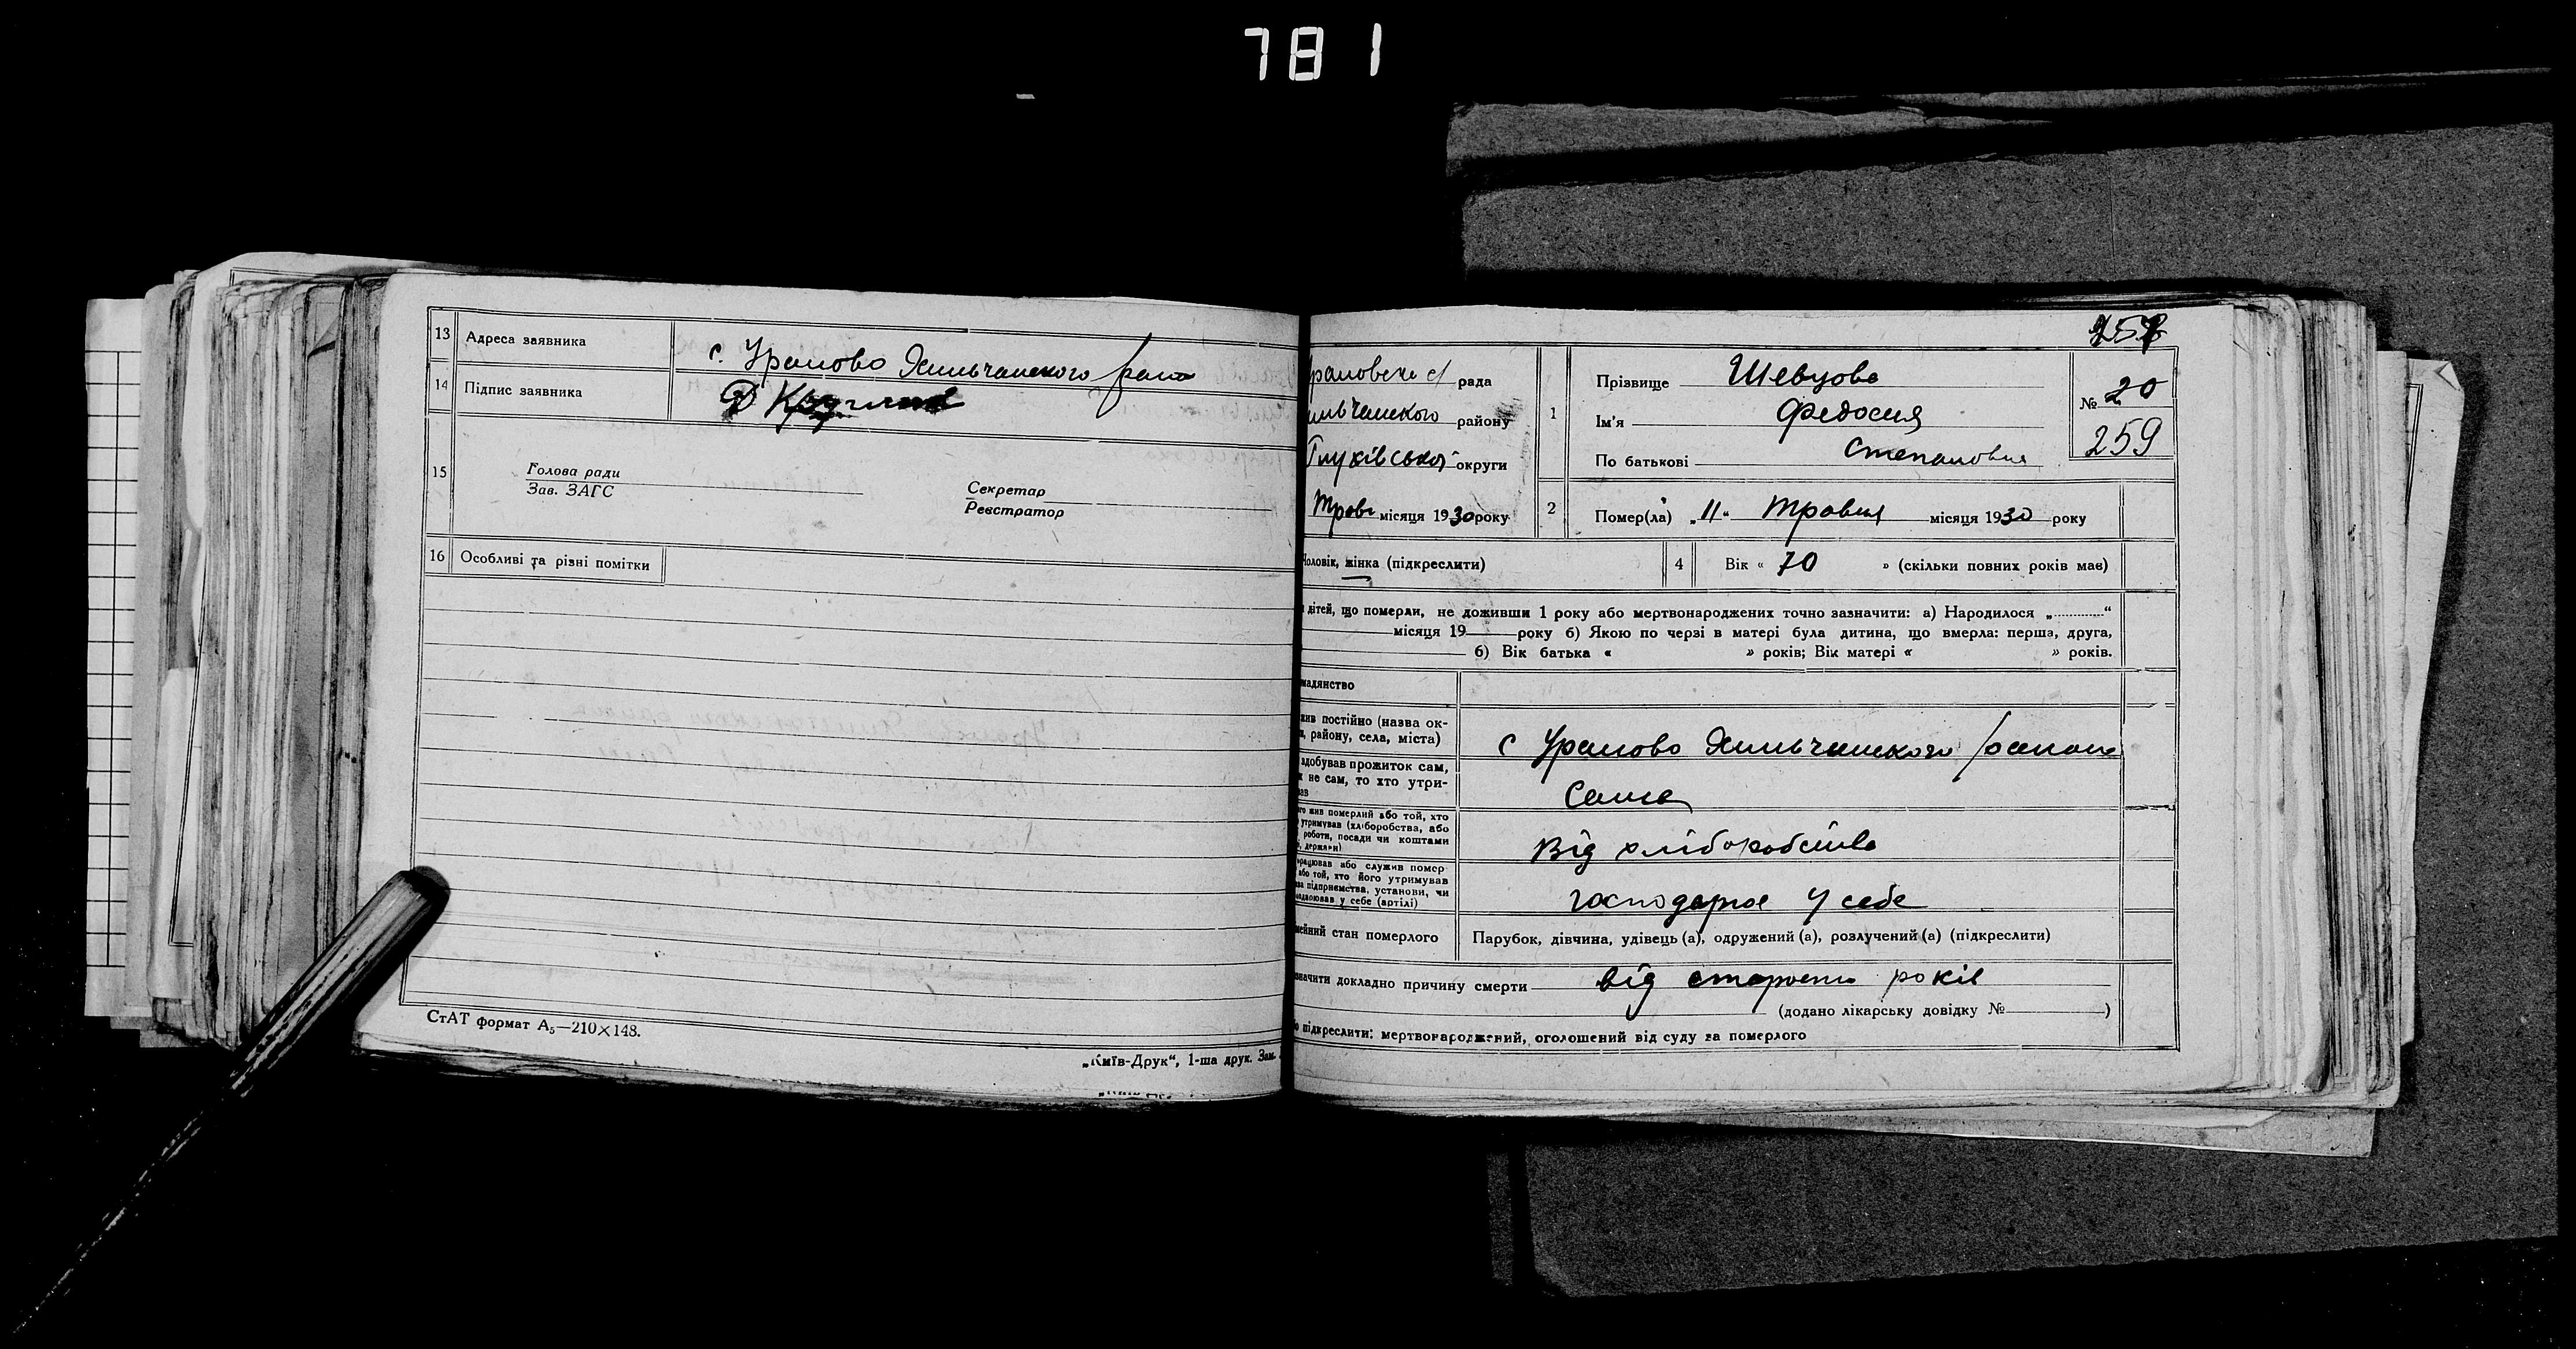 781
13 Адреса заявника с. Уралово Хильчанского рай
14 Підпис заявника
15 Голова ради
Зав. ЗАГС
Секретар
Реєстратор
16 Особливі та різні помітки
СтАТ формат А₅—210×148.
„Київ-Друк“, 1-ша друк. Зам.
257
раловська с/ рада
ильчанского району
Глухівської округи
Трав місяця 1930 року
1 Прізвище Шевцова
Ім'я Федосия
По батькові Степановна
№ 20
259
2 Помер(ла) „11“ Травня місяця 1930 року
Чоловік, жінка (підкреслити)
4 Вік « 70 » (скільки повних років має)
дітей, що померли, не доживши 1 року або мертвонароджених точно зазначити: а) Народилося „ “
місяця 19 року б) Якою по черзі в матері була дитина, що вмерла: перша, друга,
б) Вік батька « » років; Вік матері « » років.
мадянство
жив постійно (назва ок-
, району, села, міста) с Уралово Хильчанского района
здобував прожиток сам,
не сам, то хто утри-
вав Сама
го жив померлий або той, хто
утримував (хліборобства, або
роботи, посади чи коштами
держави) Від хліборобства
працював або служив помер
або той, хто його утримував
ва підприємства, установи, чи
у себе (артілі) господарює у себе
мейний стан померлого Парубок, дівчина, удівець (а), одружений (а), розлучений (а) (підкреслити)
значити докладно причину смерти від старости років
(додано лікарську довідку № )
підкреслити: мертвонароджений, оголошений від суду за померлого